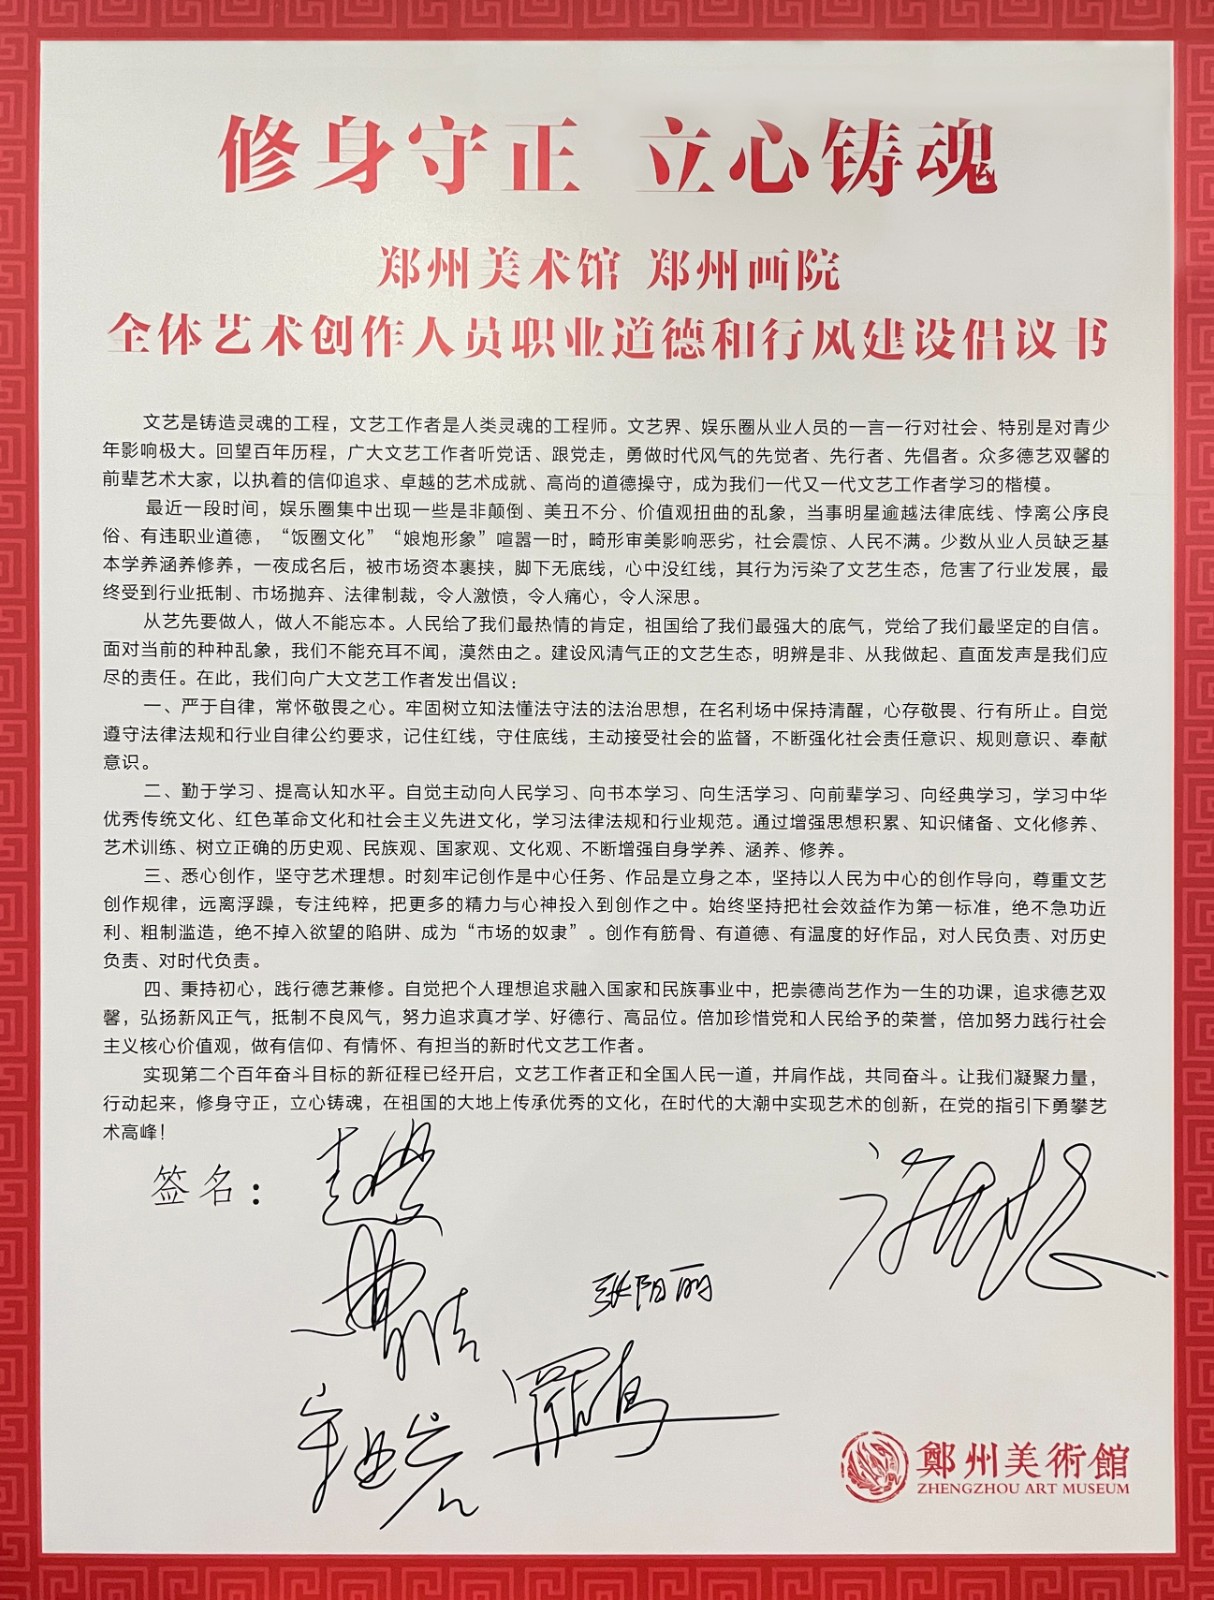 修身守正 立心铸魂
郑州美术馆 郑州画院
全体艺术创作人员职业道德和行风建设倡议书
文艺是铸造灵魂的工程，文艺工作者是人类灵魂的工程师。文艺界、娱乐圈从业人员的一言一行对社会、特别是对青少
年影响极大。回望百年历程，广大文艺工作者听党话、跟党走，勇做时代风气的先觉者、先行者、先倡者。众多德艺双馨的
前辈艺术大家，以执着的信仰追求、卓越的艺术成就、高尚的道德操守，成为我们一代又一代文艺工作者学习的楷模。
最近一段时间，娱乐圈集中出现一些是非颠倒、美丑不分、价值观扭曲的乱象，当事明星逾越法律底线、悖离公序良
俗、有违职业道德，“饭圈文化”“娘炮形象”喧嚣一时，畸形审美影响恶劣，社会震惊、人民不满。少数从业人员缺乏基
本学养涵养修养，一夜成名后，被市场资本裹挟，脚下无底线，心中没红线，其行为污染了文艺生态，危害了行业发展，最
终受到行业抵制、市场抛弃、法律制裁，令人激愤，令人痛心，令人深思。
从艺先要做人，做人不能忘本。人民给了我们最热情的肯定，祖国给了我们最强大的底气，党给了我们最坚定的自信。
面对当前的种种乱象，我们不能充耳不闻，漠然由之。建设风清气正的文艺生态，明辨是非、从我做起、直面发声是我们应
尽的责任。在此，我们向广大文艺工作者发出倡议：
一、严于自律，常怀敬畏之心。牢固树立知法懂法守法的法治思想，在名利场中保持清醒，心存敬畏、行有所止。自觉
遵守法律法规和行业自律公约要求，记住红线，守住底线，主动接受社会的监督，不断强化社会责任意识、规则意识、奉献
意识。
二、勤于学习、提高认知水平。自觉主动向人民学习、向书本学习、向生活学习、向前辈学习、向经典学习，学习中华
优秀传统文化、红色革命文化和社会主义先进文化，学习法律法规和行业规范。通过增强思想积累、知识储备、文化修养、
艺术训练、树立正确的历史观、民族观、国家观、文化观、不断增强自身学养、涵养、修养。
三、悉心创作，坚守艺术理想。时刻牢记创作是中心任务、作品是立身之本，坚持以人民为中心的创作导向，尊重文艺
创作规律，远离浮躁，专注纯粹，把更多的精力与心神投入到创作之中。始终坚持把社会效益作为第一标准，绝不急功近
利、粗制滥造，绝不掉入欲望的陷阱、成为“市场的奴隶”。创作有筋骨、有道德、有温度的好作品，对人民负责、对历史
负责、对时代负责。
四、秉持初心，践行德艺兼修。自觉把个人理想追求融入国家和民族事业中，把崇德尚艺作为一生的功课，追求德艺双
馨，弘扬新风正气，抵制不良风气，努力追求真才学、好德行、高品位。倍加珍惜党和人民给予的荣誉，倍加努力践行社会
主义核心价值观，做有信仰、有情怀、有担当的新时代文艺工作者。
实现第二个百年奋斗目标的新征程已经开启，文艺工作者正和全国人民一道，并肩作战，共同奋斗。让我们凝聚力量，
行动起来，修身守正，立心铸魂，在祖国的大地上传承优秀的文化，在时代的大潮中实现艺术的创新，在党的指引下勇攀艺
术高峰！
签名：
张阳丽
鄭州美術館
ZHENGZHOU ART MUSEUM